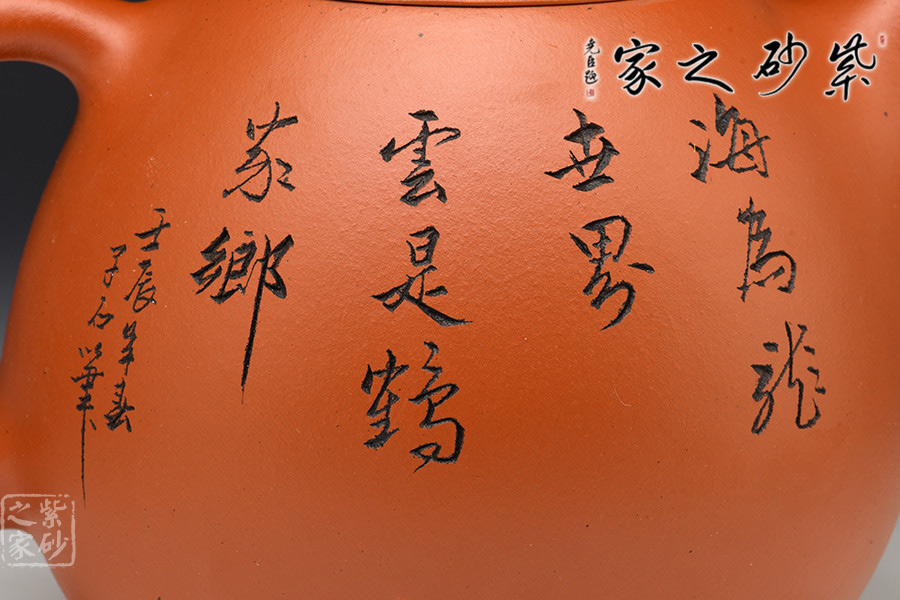 紫砂之家
海為龍
世界
雲是鶴
家鄉
壬辰年春
子石以筆
紫砂之家